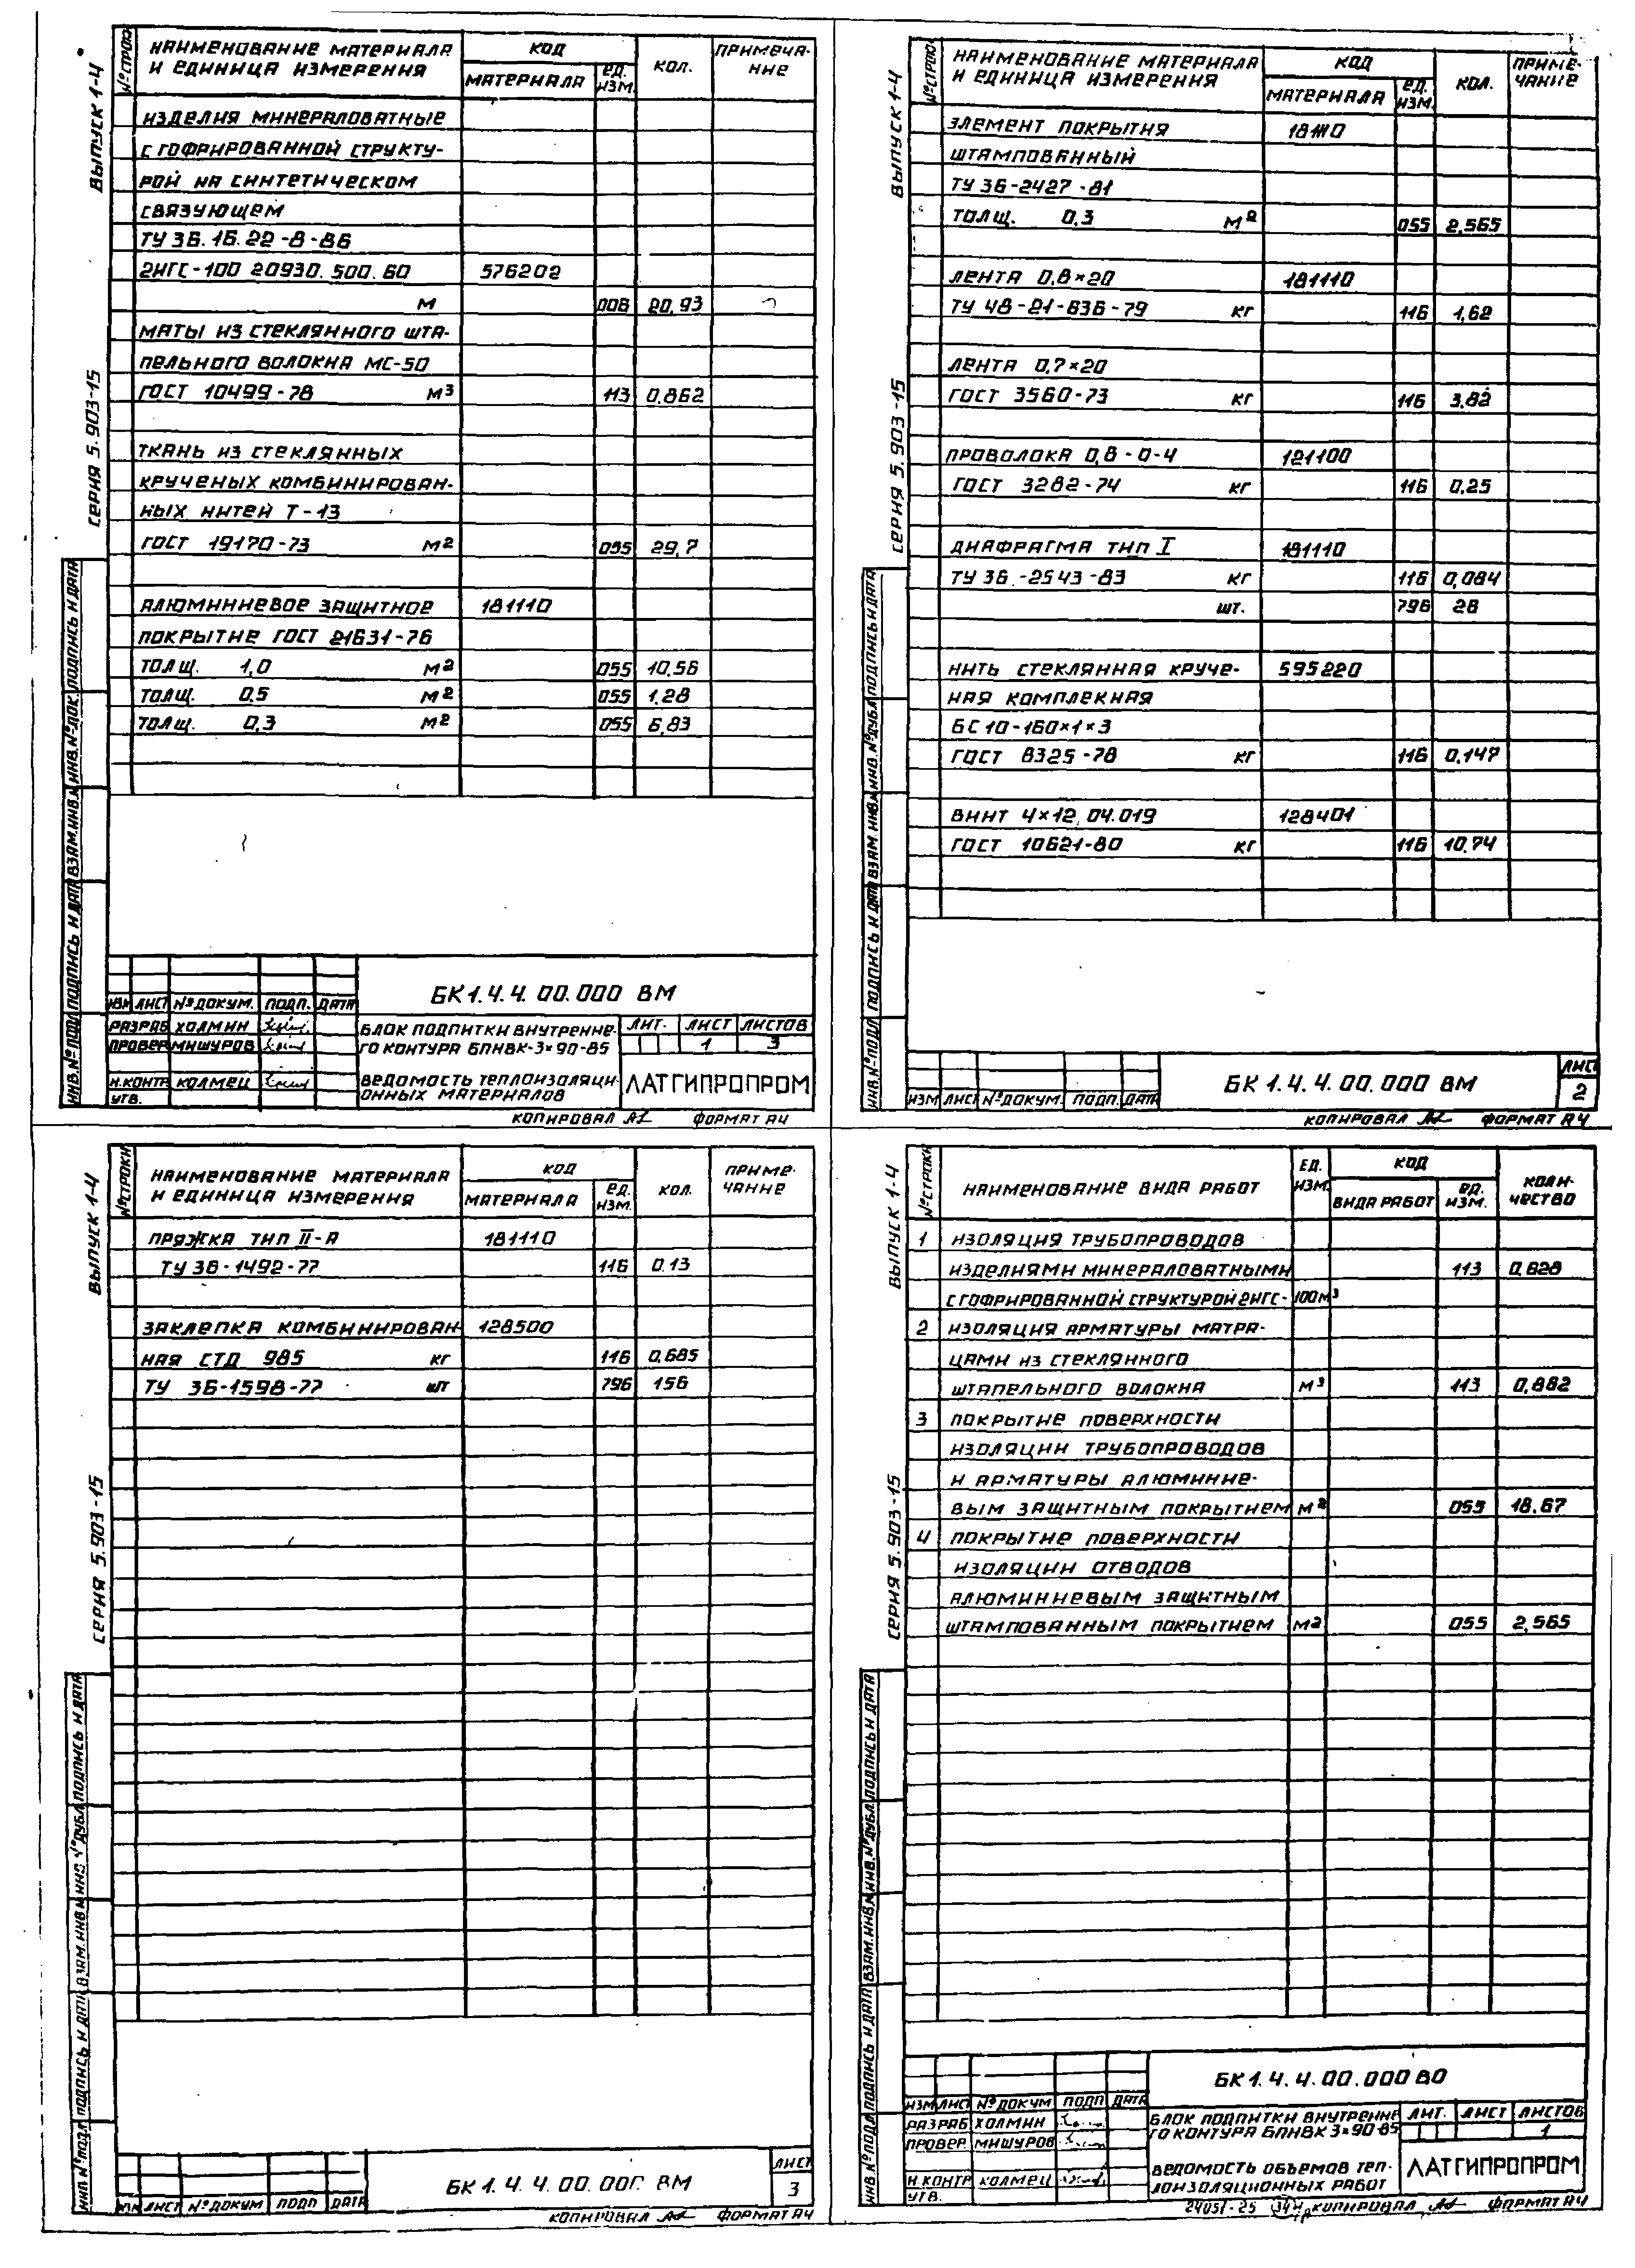 ВЫПУСК 1-4
СЕРИЯ 5.903-15
№ СТРОКИ
НАИМЕНОВАНИЕ МАТЕРИАЛА И ЕДИНИЦА ИЗМЕРЕНИЯ
КОД
МАТЕРИАЛА ЕД. ИЗМ.
КОЛ.
ПРИМЕЧА-НИЕ
ИЗДЕЛИЯ МИНЕРАЛОВАТНЫЕ
С ГОФРИРОВАННОЙ СТРУКТУ-
РОЙ НА СИНТЕТИЧЕСКОМ
СВЯЗУЮЩЕМ
ТУ 36.16.22-8-86
2ИГС-100 20930.500.60 576202
М 006 20,93
МАТЫ ИЗ СТЕКЛЯННОГО ШТА-
ПЕЛЬНОГО ВОЛОКНА МС-50
ГОСТ 10499-78 М3 113 0,862
ТКАНЬ ИЗ СТЕКЛЯННЫХ
КРУЧЕНЫХ КОМБИНИРОВАН-
НЫХ НИТЕЙ Т-13
ГОСТ 19170-73 М2 055 29,7
АЛЮМИНИЕВОЕ ЗАЩИТНОЕ 181110
ПОКРЫТИЕ ГОСТ 21631-76
ТОЛЩ. 1,0 М2 055 10,56
ТОЛЩ. 0,5 М2 055 1,28
ТОЛЩ. 0,3 М2 055 6,83
ИНВ.№ПОДЛ ПОДПИСЬ И ДАТА ВЗАМ.ИНВ.№ ИНВ.№ДОК. ПОДПИСЬ И ДАТА
ИЗМ ЛИСТ №ДОКУМ. ПОДП. ДАТА
РАЗРАБ ХОЛМИН
ПРОВЕР МИШУРОВ
Н.КОНТР КОЛМЕЦ
УТВ.
БК 1.4.4.00.000 ВМ
БЛОК ПОДПИТКИ ВНУТРЕННЕ-
ГО КОНТУРА БПНВК-3×90-85
ВЕДОМОСТЬ ТЕПЛОИЗОЛЯЦИ-
ОННЫХ МАТЕРИАЛОВ
ЛИТ. ЛИСТ ЛИСТОВ
1 3
ЛАТГИПРОПРОМ
КОПИРОВАЛ ФОРМАТ А4
ВЫПУСК 1-4
СЕРИЯ 5.903-15
№ СТРОКИ
НАИМЕНОВАНИЕ МАТЕРИАЛА И ЕДИНИЦА ИЗМЕРЕНИЯ
КОД
МАТЕРИАЛА ЕД. ИЗМ.
КОЛ.
ПРИМЕ-ЧАНИЕ
ЭЛЕМЕНТ ПОКРЫТИЯ 181110
ШТАМПОВАННЫЙ
ТУ 36-2427-81
ТОЛЩ. 0,3 М2 055 2,565
ЛЕНТА 0,8×20 181110
ТУ 48-21-636-79 КГ 116 1,62
ЛЕНТА 0,7×20
ГОСТ 3560-73 КГ 116 3,82
ПРОВОЛОКА 0,8-О-Ч 121100
ГОСТ 3282-74 КГ 116 0,25
ДИАФРАГМА ТИП I 181110
ТУ 36.-2543-83 КГ 116 0,084
ШТ. 796 28
НИТЬ СТЕКЛЯННАЯ КРУЧЕ- 595220
НАЯ КОМПЛЕКНАЯ
БС 10-160×1×3
ГОСТ 8325-78 КГ 116 0,147
ВИНТ 4×12.04.019 128401
ГОСТ 10621-80 КГ 116 10,74
ИНВ.№ПОДЛ ПОДПИСЬ И ДАТА ВЗАМ.ИНВ.№ ИНВ.№ДУБЛ ПОДПИСЬ И ДАТА
ИЗМ ЛИСТ №ДОКУМ. ПОДП. ДАТА
БК 1.4.4.00.000 ВМ
ЛИСТ
2
КОПИРОВАЛ ФОРМАТ А4
ВЫПУСК 1-4
СЕРИЯ 5.903-15
№ СТРОКИ
НАИМЕНОВАНИЕ МАТЕРИАЛА И ЕДИНИЦА ИЗМЕРЕНИЯ
КОД
МАТЕРИАЛА ЕД. ИЗМ.
КОЛ.
ПРИМЕ-ЧАНИЕ
ПРЯЖКА ТИП II-А 181110
ТУ 36-1492-77 116 0.13
ЗАКЛЕПКА КОМБИНИРОВАН 128500
НАЯ СТД 985 КГ 116 0,685
ТУ 36-1598-77 ШТ 796 156
ИНВ №ПОДЛ ПОДПИСЬ И ДАТА ВЗАМ.ИНВ № ИНВ №ДУБЛ ПОДПИСЬ И ДАТА
ИЗМ ЛИСТ №ДОКУМ ПОДП ДАТА
БК 1.4.4.00.00Г. ВМ
ЛИСТ
3
КОПИРОВАЛ ФОРМАТ А4
ВЫПУСК 1-4
СЕРИЯ 5.903-15
№ СТРОКИ
НАИМЕНОВАНИЕ ВИДА РАБОТ
ЕД. ИЗМ.
КОД
ВИДА РАБОТ ЕД. ИЗМ.
КОЛИ-ЧЕСТВО
1 ИЗОЛЯЦИЯ ТРУБОПРОВОДОВ
ИЗДЕЛИЯМИ МИНЕРАЛОВАТНЫМИ 113 0,628
С ГОФРИРОВАННОЙ СТРУКТУРОЙ 2ИГС-100 М3
2 ИЗОЛЯЦИЯ АРМАТУРЫ МАТРА-
ЦАМИ ИЗ СТЕКЛЯННОГО
ШТАПЕЛЬНОГО ВОЛОКНА М3 113 0,862
3 ПОКРЫТИЕ ПОВЕРХНОСТИ
ИЗОЛЯЦИИ ТРУБОПРОВОДОВ
И АРМАТУРЫ АЛЮМИНИЕ-
ВЫМ ЗАЩИТНЫМ ПОКРЫТИЕМ М2 055 18.67
4 ПОКРЫТИЕ ПОВЕРХНОСТИ
ИЗОЛЯЦИИ ОТВОДОВ
АЛЮМИНИЕВЫМ ЗАЩИТНЫМ
ШТАМПОВАННЫМ ПОКРЫТИЕМ М2 055 2,565
ИНВ №ПОДЛ ПОДПИСЬ И ДАТА ВЗАМ.ИНВ.№ ИНВ.№ДУБЛ ПОДПИСЬ И ДАТА
ИЗМ ЛИСТ №ДОКУМ ПОДП ДАТА
РАЗРАБ ХОЛМИН
ПРОВЕР. МИШУРОВ
Н.КОНТР КОЛМЕЦ
УТВ.
БК 1.4.4.00.000 ВО
БЛОК ПОДПИТКИ ВНУТРЕННЕ
ГО КОНТУРА БПНВК 3×90-85
ВЕДОМОСТЬ ОБЪЕМОВ ТЕП-
ЛОИЗОЛЯЦИОННЫХ РАБОТ
ЛИТ. ЛИСТ ЛИСТОВ
1
ЛАТГИПРОПРОМ
24051-25 344 КОПИРОВАЛ ФОРМАТ А4